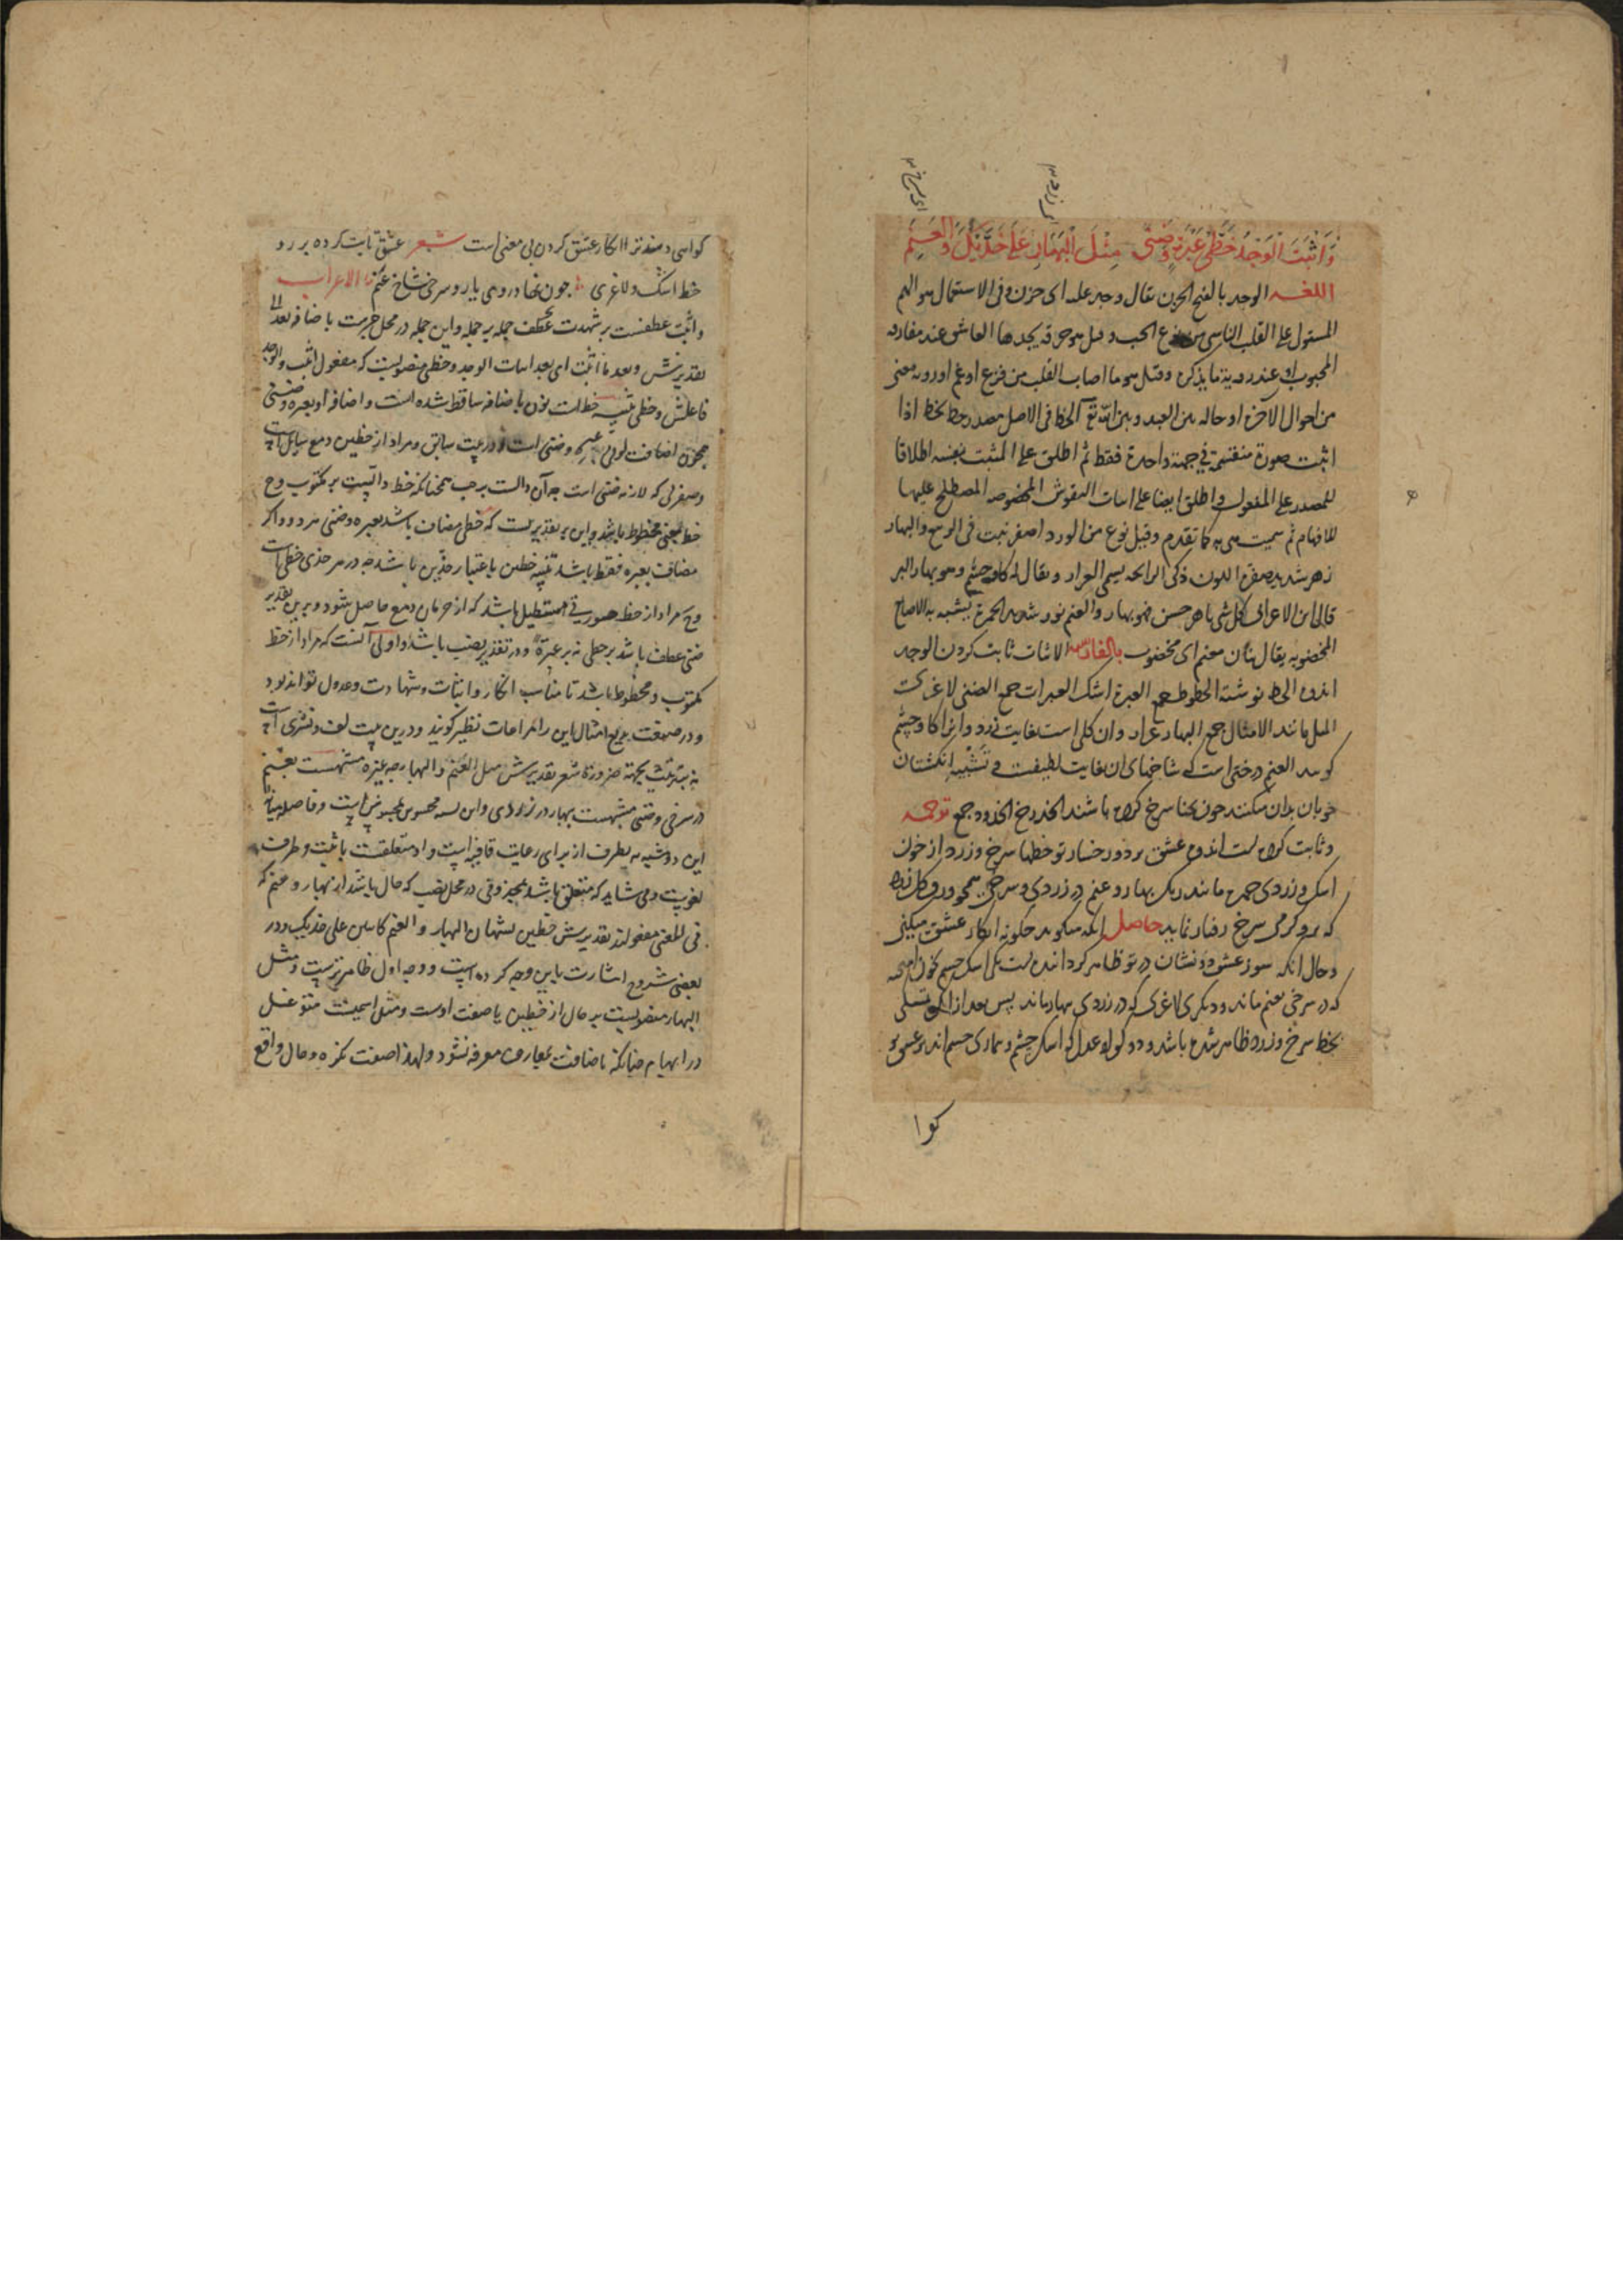 وَاَثْبَتَ الْوَجْدُ خَطَّیْ عَبْرَةٍ وَضَنًی مِثْلَ الْبَهَارِ عَلَی خَدَّیْكَ وَالْعَنَمِ
اللغـه الوجد بالفتح الحزن یقال وجد علیه ای حزن و فی الاستعمال هو الهم
المستولی علی القلب الناسی من الحب و قیل هو حرقه یجدها العاشق عند مفارقه
المحبوب او عند رویة ما یذکره وقیل هو ما اصاب القلب من فزع او غم او رویه معنی
من احوال الاخرة او حاله بین العبد و بین الله تع الخط فی الاصل مصدر خط یخط اذا
اثبت صورة منقسمة فی جهة واحدة فقط ثم اطلق علی المثبت نفسه اطلاقا
للمصدر علی المفعول و اطلق ایضا علی اسات النقوش المخصوصه المصطلح علیها
للافهام ثم سمیت هی به کما تقدم وقیل نوع من الورد اصفر نبت فی الربیع والبهار
زهر شدید صفرة اللون ذکی الرایحه یسمی العرار و یقال له کاوچشم و هو بهار البر
قال ابن الاعرابی کل شی باهر حسن فهو بهار والعنم نور شدید الحمرة یشبه به الاصابع
المخضوبه یقال بنان معنم ای مخضوب بالفارسیه الاثبات ثابت کردن الوجد
اندوه الخط نوشته الخطوط جمع العبرة اشک العبرات جمع الضنی لاغری
المثل مانند الامثال جمع البهار عرار و ان کلی است بغایت زرد و انرا کاوچشم
کویند العنم درختی است که شاخهای ان بغایت لطیفست و تشبیه انکشتان
خوبان بدان میکنند چون بحنا سرخ کرده باشند الخد رخ الخدود جمع ترجمه
و ثابت کرده است اندوه عشق بر دو رخسار تو خطها سرخ و زرد از خون
اشک و زردی چهره مانند رنک بهار و عنم در زردی و سرخی همچو ورد و کل زرد
که حاصل انکه میکوید چکونه انکار عشق میکنی
و حال انکه سوز عشق دو نشان در تو ظاهر کردانیده است یکی اشک چشم
که در سرخی بعنم ماند و دیکری لاغری که در زردی ببهار ماند پس بعد از انکه
بخط سرخ و زرد ظاهر شده باشد و دو کواه عدل که اشک چشم و بیماری جسم اند بر عشق تو
کوا
کواهی دهند ترا انکار عشق کردن بی معنی است شعر عشق ثابت کرده بر رو
خط اشک و لاغری چون بهار در روی یار و سرخی شاخ عنم الاعراب
و اثبت عطفست بر شهدت بعطف جمله بر جمله و این جمله در محل جرست باضافه بعد
تقدیرش و بعد ما اثبت ای بعد اثبات الوجد و خطی منصوبست که مفعول اثبت و الوجد
فاعلش و خطی تثنیه خط است نون باضافه ساقط شده است و اضافه او بعبره و ضنی
همچون اضافت لونی عبرة و ضنی است در بیت سابق و مراد از خطین دمع سایل است
و صفرتی که لازمه ضنی است چه آن دالست بر حب همچنانکه خط دالیست بر مکتوب و ح
خط بمعنی مخطوط باشد و این بر تقدیریست که خطی مضاف باشد بعبره و ضنی هر دو و اکر
مضاف بعبره فقط باشد تثنیه خطین باعتبار خدین باشد چه در هر خدی خطی است
و ح مراد از خط صورتی مستطیل باشد که از جریان دمع حاصل شود و برین تقدیر
ضنی عطف باشد بر خطی نه بر عبرة و در تقدیر نصب باشد و اولی آنست که مراد از خط
مکتوب و مخطوط باشد تا مناسب انکار و اثبات و شهادت و عدول تواند بود
و در صنعت بدیع امثال این را مراعات نظیر کویند و درین بیت لف و نشری است
نه بترتیب بجهة ضرورة شعر تقدیرش مثل العنم و البهار چه عبره مشبهست بعنم
در سرخی و ضنی مشبهست ببهار در زردی و این تشبیه محسوس بمحسوس است و فاصله میان
این دو مشبه به بظرف از برای رعایت قافیه است و او متعلقست باثبت و ظرف
لغویست و می شاید که متعلق باشد بمحذوفی در محل نصب که حال باشد از بهار و عنم که
فی المعنی مفعولند تقدیرش خطین یشبهان البهار و العنم کاینین علی خدیک و در
بعضی شروح اشارت باین وجه کرده است و وجه اول ظاهرترست و مثل
البهار منصوبست بر حال از خطین یا صفت اوست و مثل اسمیست متوغل
در ابهام چنانکه باضافت بمعارف معرفه نشود و لهذا صفت نکره و حال واقع